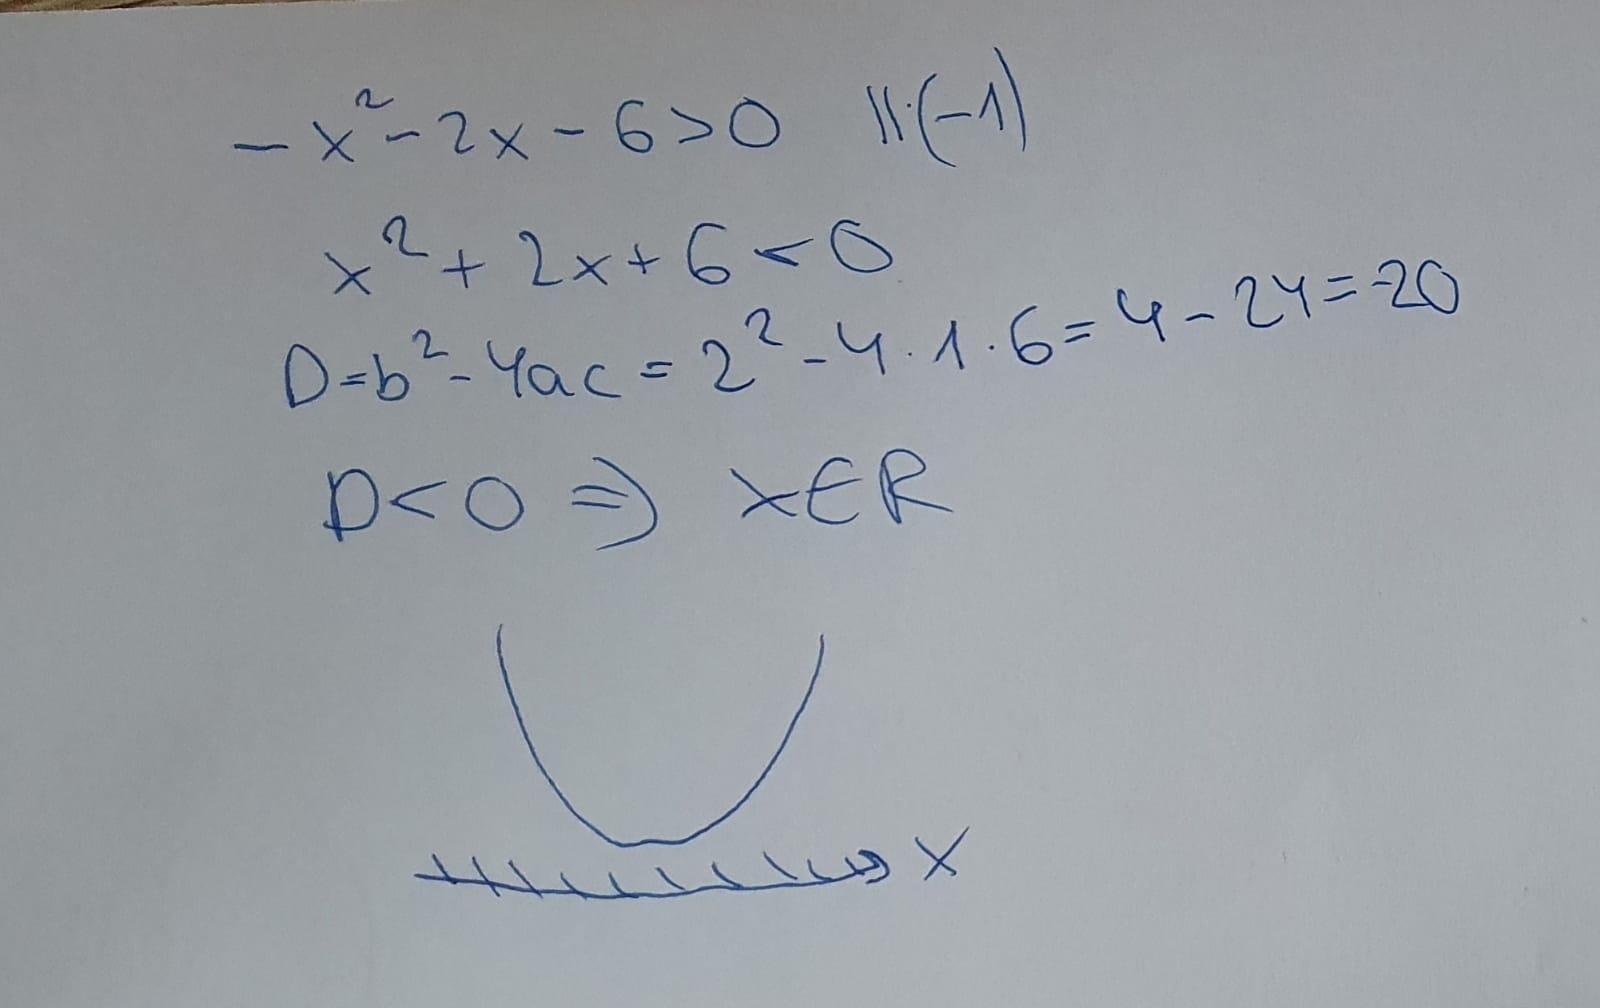 -x²-2x-6>0 ||·(-1)
x²+2x+6<0
D=b²-4ac=2²-4·1·6=4-24=-20
D<0 ⇒ x∈R
x